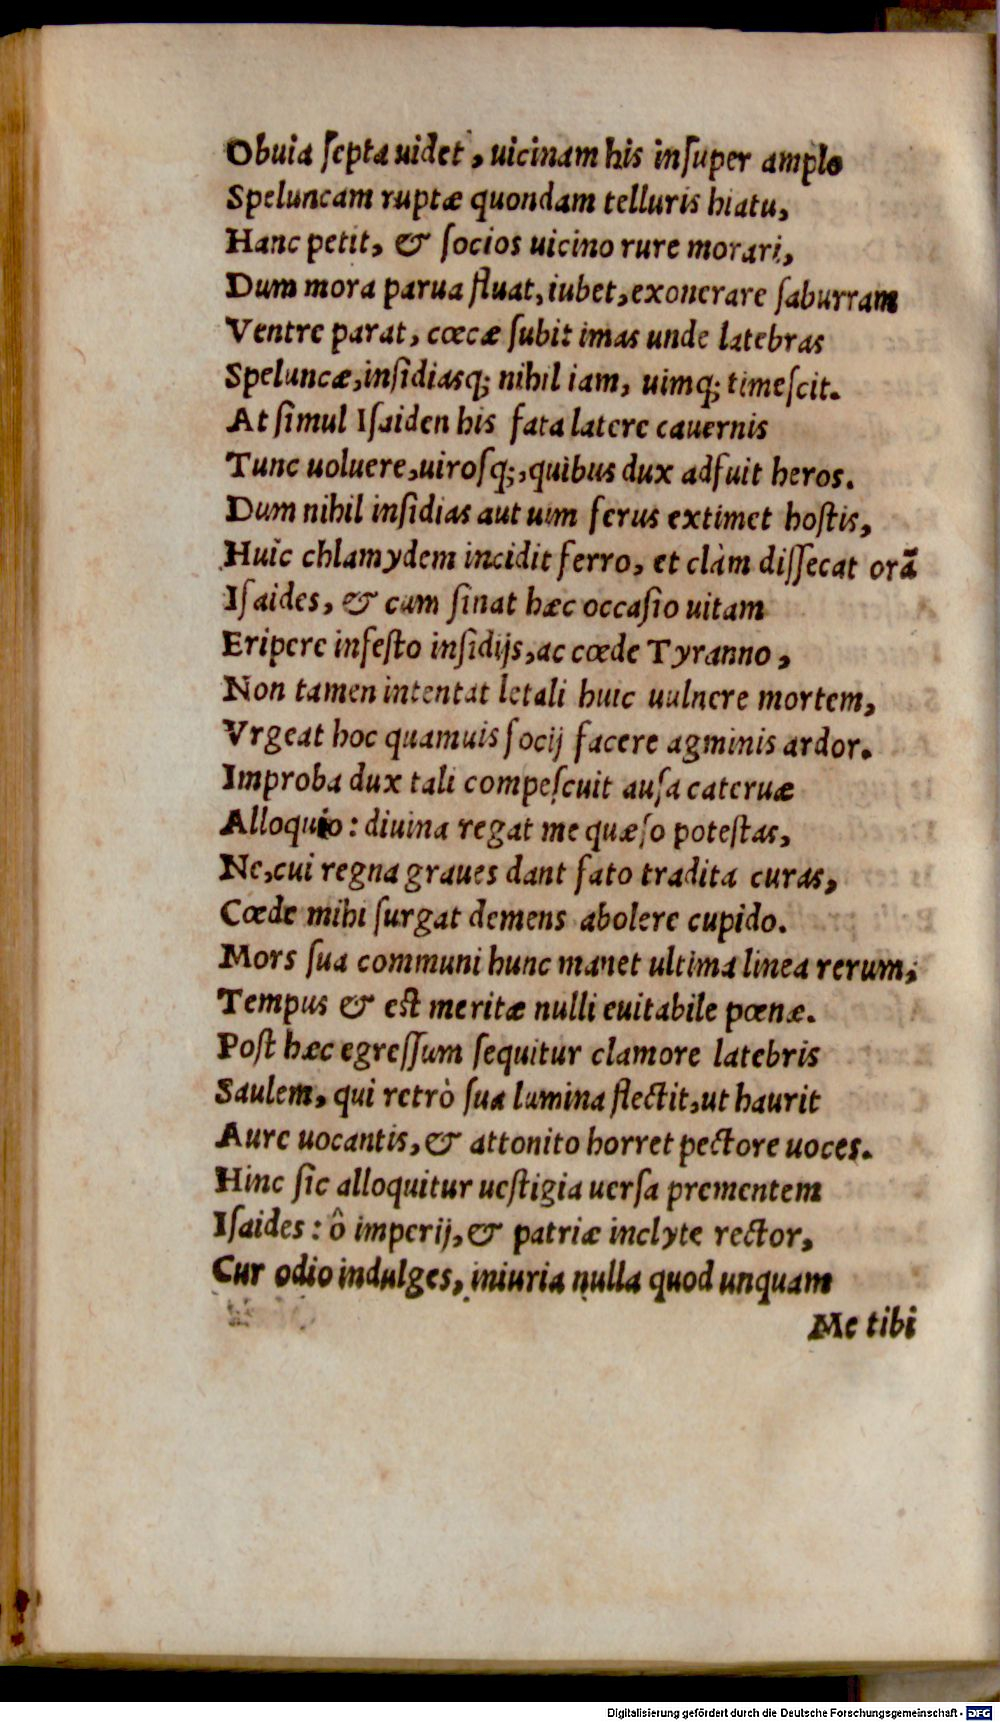 Obuia ſepta uidet, uicinam his inſuper amplo
Speluncam ruptæ quondam telluris hiatu,
Hanc petit, & ſocios uicino rure morari,
Dum mora parua fluat, iubet, exonerare ſaburram
Ventre parat, cœcæ ſubit imas unde latebras
Speluncæ, inſidiasq; nihil iam, uimq; timeſcit.
At ſimul Iſaiden his fata latere cauernis
Tunc uoluere, uirosq;, quibus dux adfuit heros.
Dum nihil inſidias aut uim ferus extimet hoſtis,
Huic chlamydem incidit ferro, et clàm diſſecat orã
Iſaides, & cum ſinat hæc occaſio uitam
Eripere infeſto inſidijs, ac cœde Tyranno,
Non tamen intentat letali huic uulnere mortem,
Vrgeat hoc quamuis ſocij facere agminis ardor.
Improba dux tali compeſcuit auſa cateruæ
Alloquio: diuina regat me quæſo poteſtas,
Ne, cui regna graues dant fato tradita curas,
Cœde mihi ſurgat demens abolere cupido.
Mors ſua communi hunc manet ultima linea rerum,
Tempus & eſt meritæ nulli euitabile pœnæ.
Poſt hæc egreſſum ſequitur clamore latebris
Saulem, qui retrò ſua lumina flectit, ut haurit
Aure uocantis, & attonito horret pectore uoces.
Hinc ſic alloquitur ueſtigia uerſa prementem
Iſaides: ô imperij, & patriæ inclyte rector,
Cur odio indulges, iniuria nulla quod unquam
Me tibi
Digitalisierung gefördert durch die Deutsche Forschungsgemeinschaft - DFG